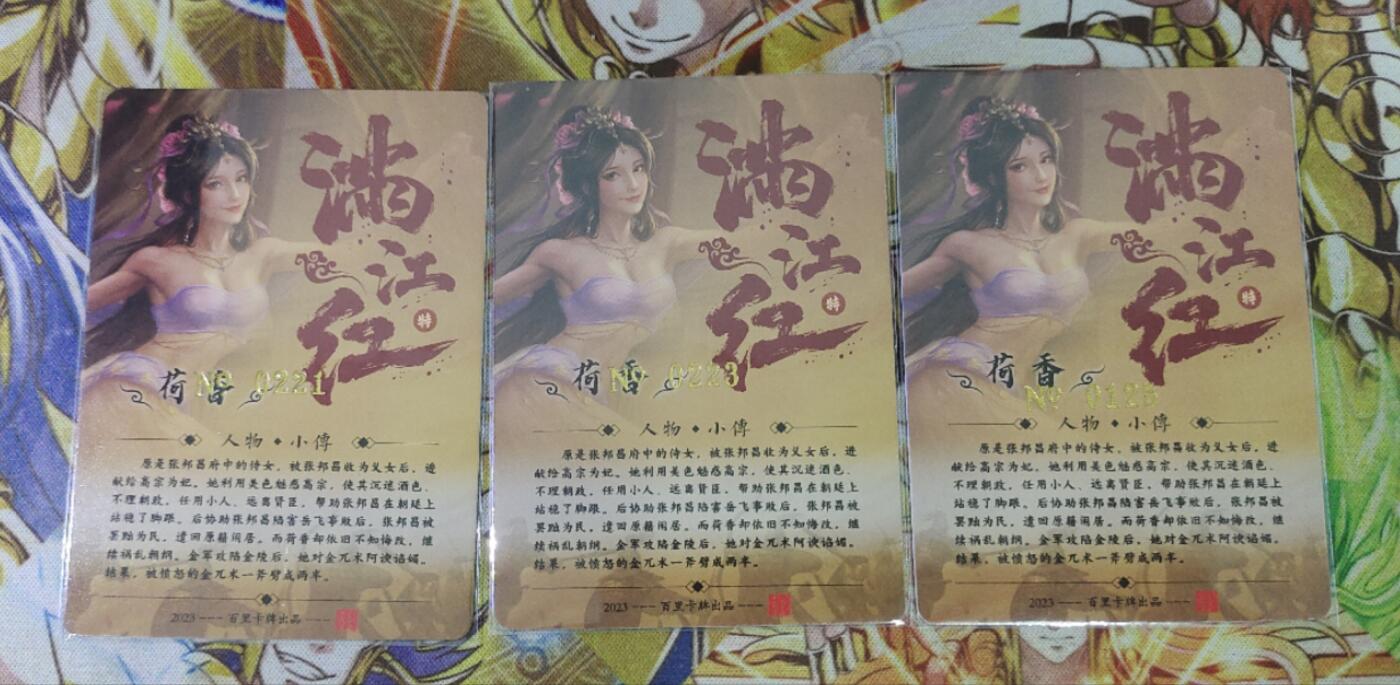 满江红
特
荷香
№ 0221
人物 ◆ 小傳
原是张邦昌府中的侍女，被张邦昌收为义女后，进
献给高宗为妃。她利用美色魅惑高宗，使其沉迷酒色，
不理朝政，任用小人，远离贤臣，帮助张邦昌在朝廷上
站稳了脚跟。后协助张邦昌陷害岳飞事败后，张邦昌被
罢黜为民，遣回原籍闲居。而荷香却依旧不知悔改，继
续祸乱朝纲。金军攻陷金陵后，她对金兀术阿谀谄媚。
结果，被愤怒的金兀术一斧劈成两半。
2023 --- 百里卡牌出品 ---
满江红
特
荷香
№ 0223
人物 ◆ 小傳
原是张邦昌府中的侍女，被张邦昌收为义女后，进
献给高宗为妃。她利用美色魅惑高宗，使其沉迷酒色，
不理朝政，任用小人，远离贤臣，帮助张邦昌在朝廷上
站稳了脚跟。后协助张邦昌陷害岳飞事败后，张邦昌被
罢黜为民，遣回原籍闲居。而荷香却依旧不知悔改，继
续祸乱朝纲。金军攻陷金陵后，她对金兀术阿谀谄媚。
结果，被愤怒的金兀术一斧劈成两半。
2023 --- 百里卡牌出品 ---
满江红
特
荷香
人物 ◆ 小傳
原是张邦昌府中的侍女，被张邦昌收为义女后，进
献给高宗为妃。她利用美色魅惑高宗，使其沉迷酒色，
不理朝政，任用小人，远离贤臣，帮助张邦昌在朝廷上
站稳了脚跟。后协助张邦昌陷害岳飞事败后，张邦昌被
罢黜为民，遣回原籍闲居。而荷香却依旧不知悔改，继
续祸乱朝纲。金军攻陷金陵后，她对金兀术阿谀谄媚。
结果，被愤怒的金兀术一斧劈成两半。
2023 --- 百里卡牌出品 ---